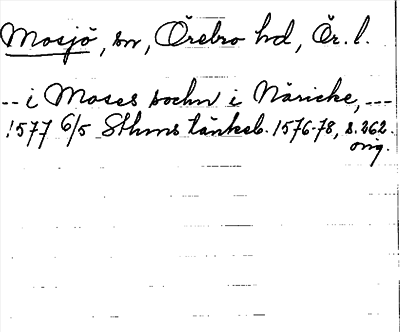 Mosjö, sn, Örebro hd, Ör. l.
-- i Moses sochn i Näricke, ---
1577 6/5 Sthms tänkeb. 1576-78, s. 262.
orig.